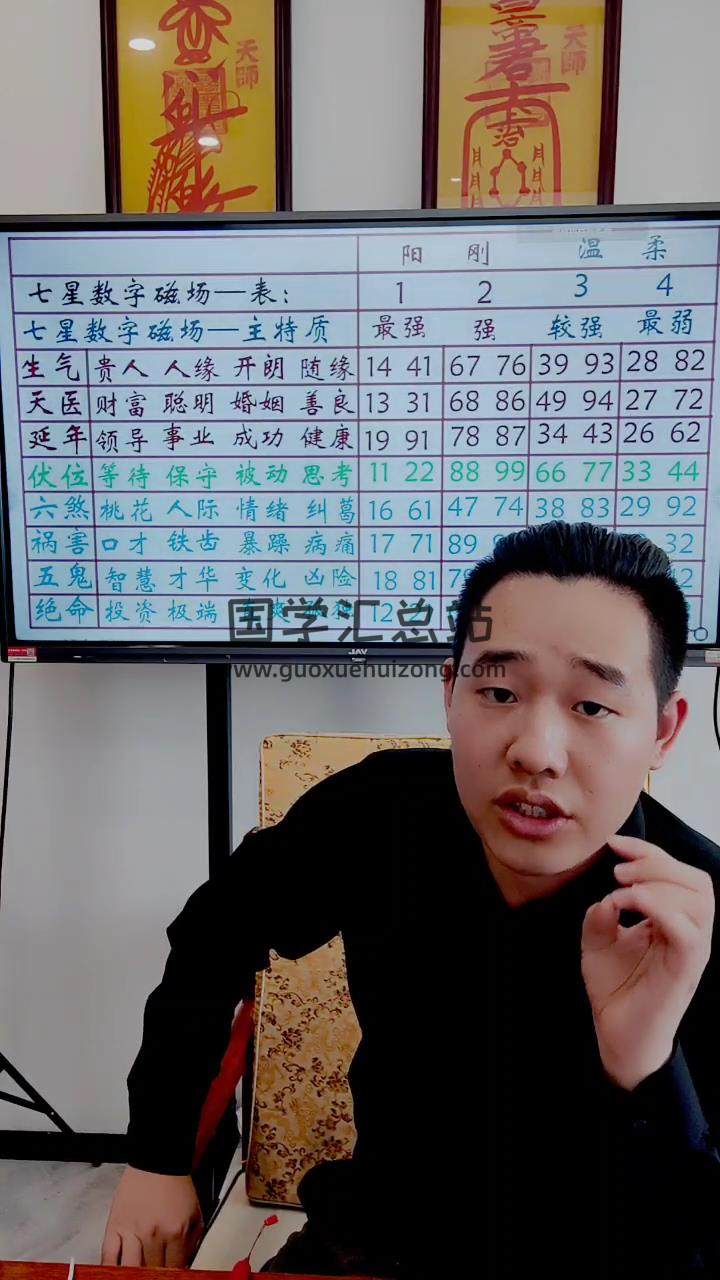 天師
天師
治
阳 刚 温 柔
七星数字磁场—表: 1 2 3 4
七星数字磁场—主特质 最强 强 较强 最弱
生气 贵人 人缘 开朗 随缘 14 41 67 76 39 93 28 82
天医 财富 聪明 婚姻 善良 13 31 68 86 49 94 27 72
延年 领导 事业 成功 健康 19 91 78 87 34 43 26 62
伏位 等待 保守 被动 思考 11 22 88 99 66 77 33 44
六煞 桃花 人际 情绪 纠葛 16 61 47 74 38 83 29 92
祸害 口才 铁齿 暴躁 病痛 17 71 89 32
五鬼 智慧 才华 变化 凶险 18 81
绝命 投资 极端 12
国学汇总站
JAV
www.guoxuehuizong.com